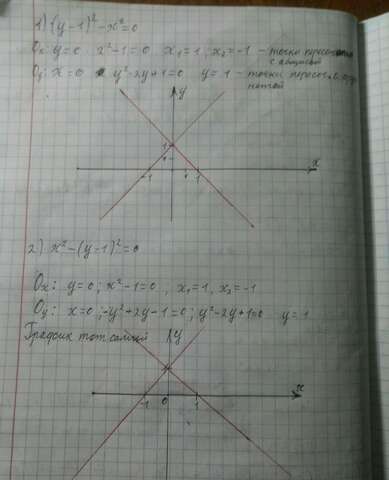 1) (y-1)²-x²=0
Ox: y=0 x²-1=0 x₁=1, x₂=-1 - точки пересечения
с абциссой
Oy: x=0 y²-2y+1=0 y=1 - точки пересеч. с орди
натой
y
1
-1 1 x
2) x²-(y-1)²=0
Ox: y=0; x²-1=0, x₁=1, x₂=-1
Oy: x=0; -y²+2y-1=0; y²-2y+1=0 y=1
График тот самый
y
x
-1 0 1